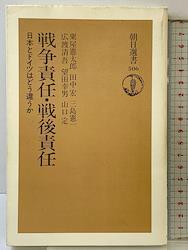 朝日選書
506
戦争責任・戦後責任
日本とドイツはどう違うか
粟屋憲太郎 田中 宏 三島憲一
広渡清吾 望田幸男 山口 定